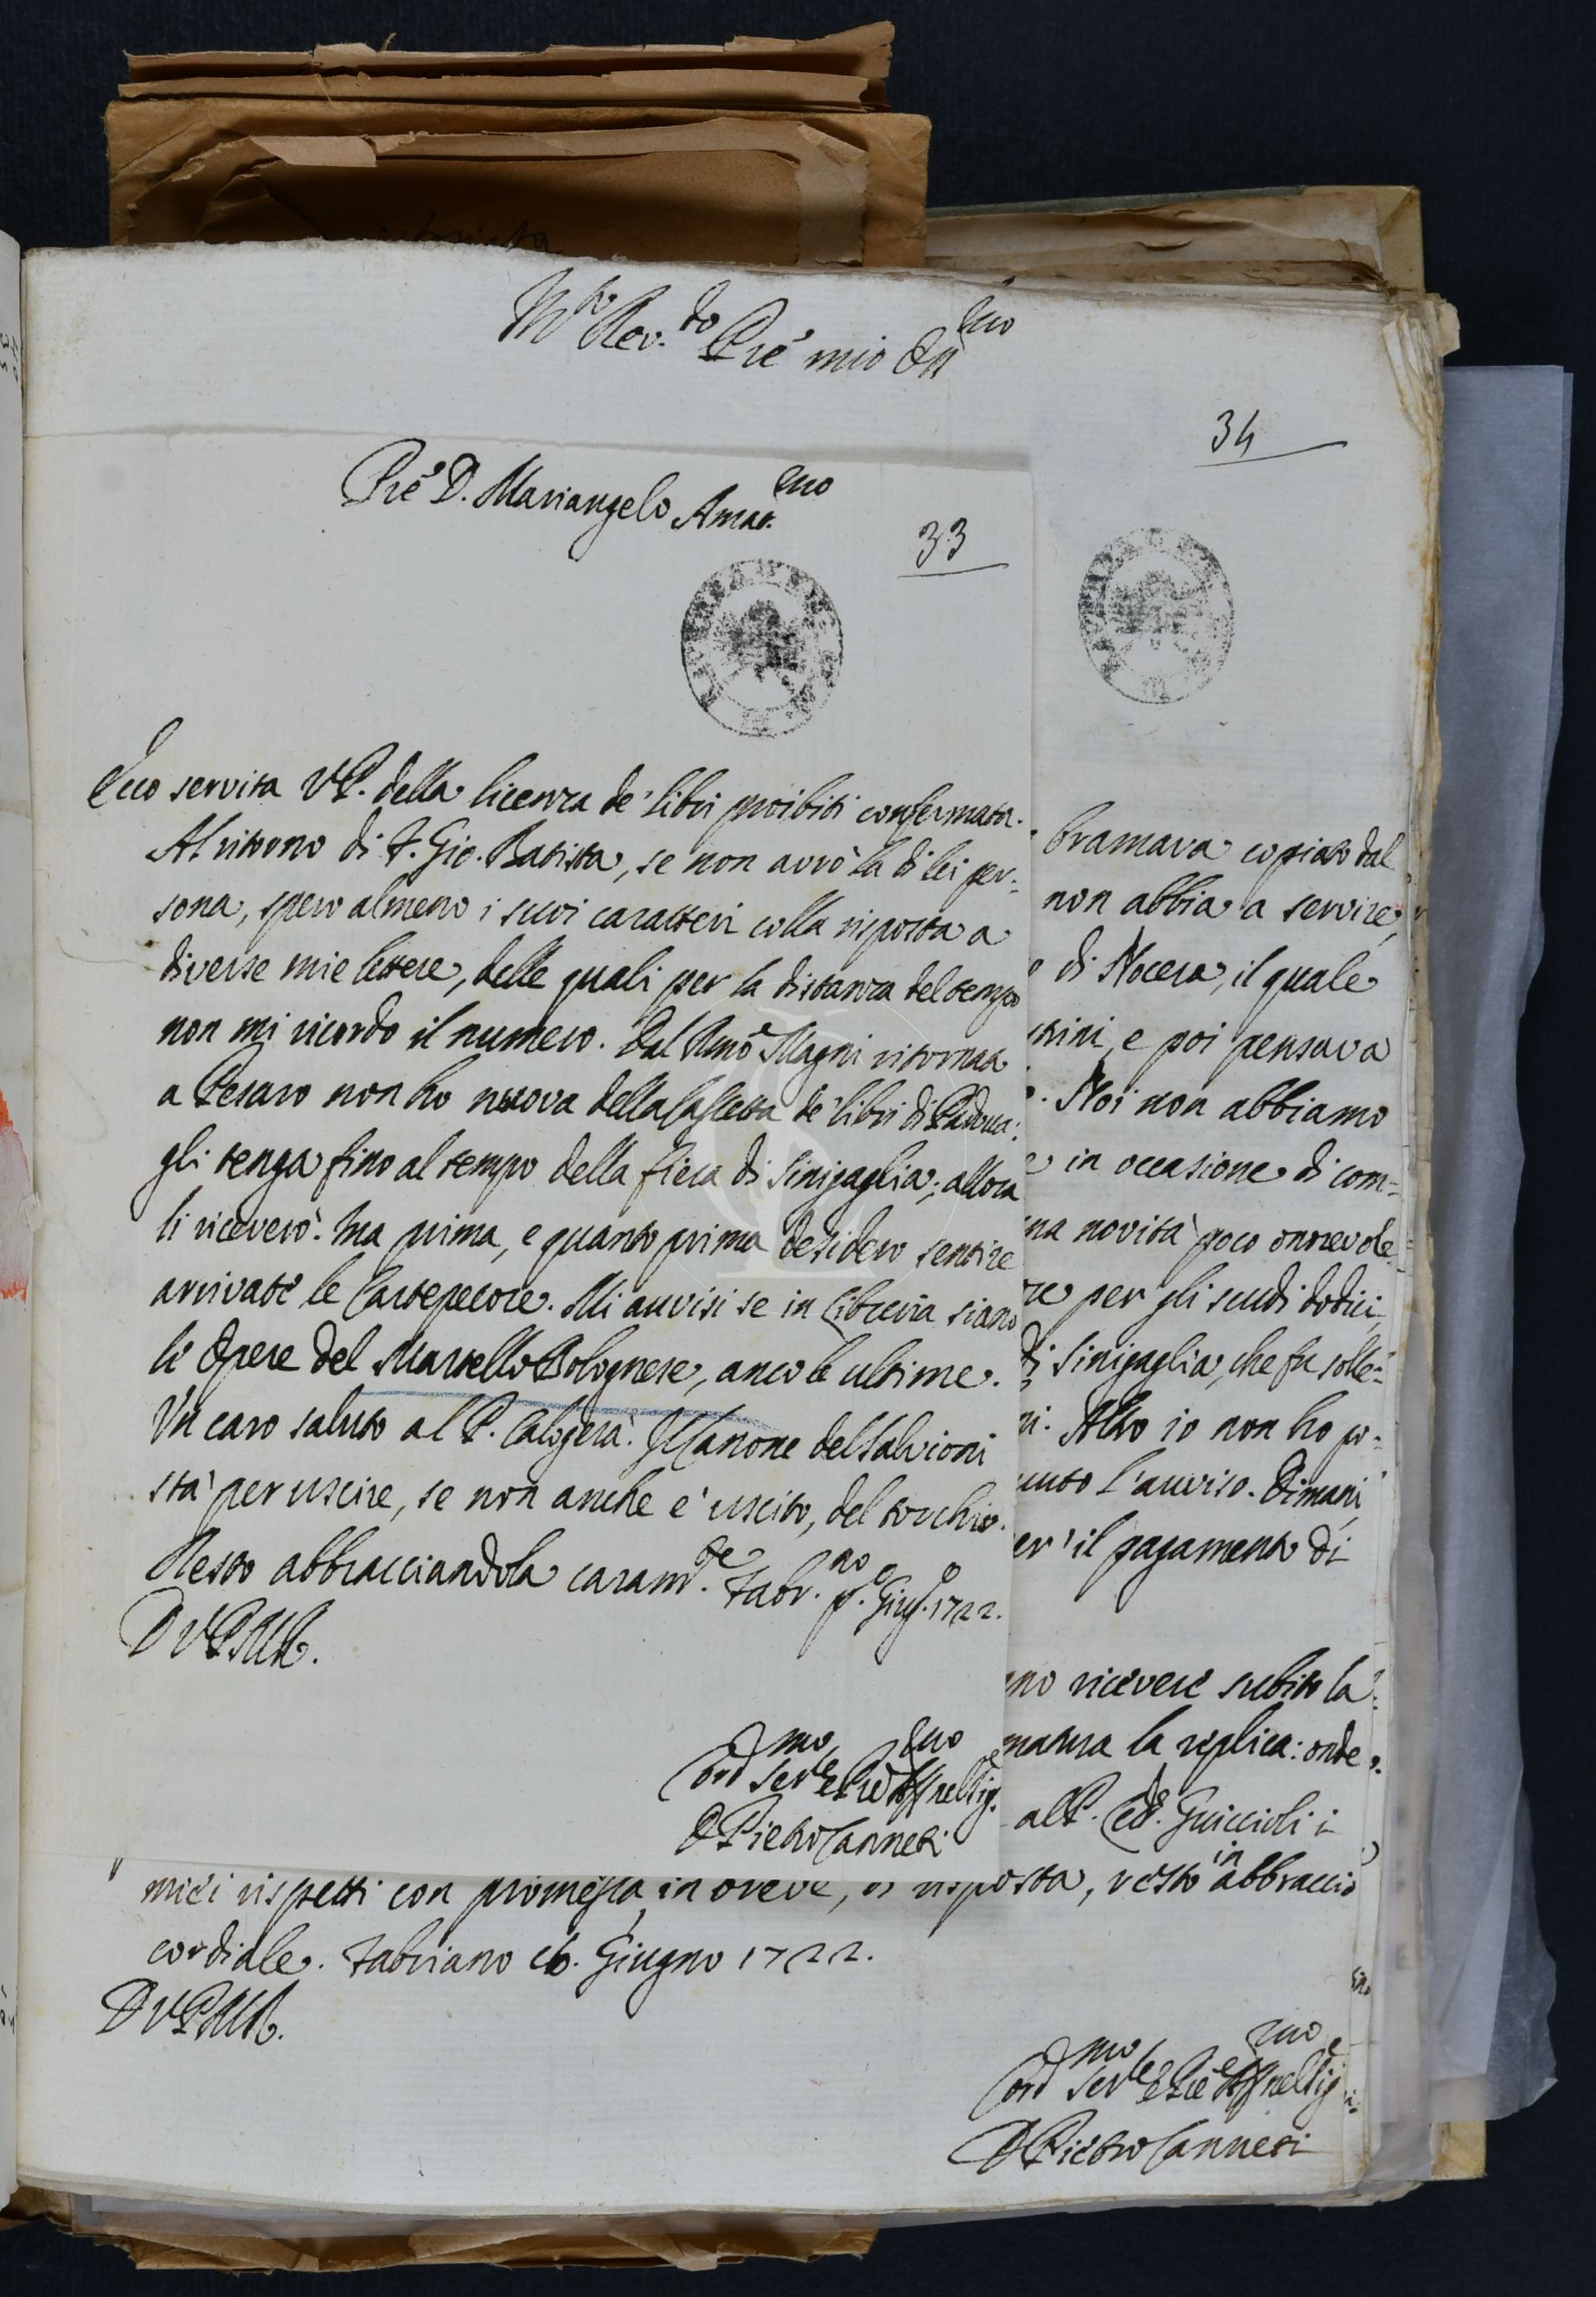 Mto Rev.do Pre mio Oss.mo
34
Pre D. Mariangelo Amat.mo
33
Ecco servita V.P. della licenza de' libri proibiti confermata.
Al ritorno di F. Gio. Batista, se non avrò la di lei per:
sona, spero almeno i suoi caratteri colla risposta a
diverse mie lettere, delle quali per la distanza del tempo
non mi ricordo il numero. Dal Rmo Magni ritornato
a Pesaro non ho nuova della Cassetta de' libri di Padova:
gli tenga fino al tempo della fiera di Sinigaglia; allora
li riceverò: ma prima, e quanto prima desidero sentire
arrivate le Cartepecore. Mi avvisi se in Libreria siano
le Opere del Martello Bolognese, anco le ultime.
Un caro saluto al P. Calogerà. Il Canone del Salvioni
stà per uscire, se non anche è uscito, del torchio.
Resto abbracciandola caram.te Fabr.no p.o Giug.o 1722.
D V P M R.
Cord.mo Ser.le e Pre Aff.mo nel Sig.
D Pietro Canneti
bramava copiato dal
non abbia a servire,
di Nocera, il quale
trini, e poi pensava
Noi non abbiamo
e in occasione di com:
na novità poco onorevole
re per gli scudi dodici,
di Sinigaglia, che fu solle:
ni. Altro io non ho po:
uuto l'avviso. Dimani,
er' il pagamento di
no ricevere subito la
matura la replica: onde
al P. Ed. Guiccioli i
miei rispetti con promessa, in breve, di risposta, resto in abbraccio
cordiale. Fabriano 16. Giugno 1722.
D V P M R.
Cord.mo Ser.le e Pre Aff.mo nel Sig
D Pietro Canneti